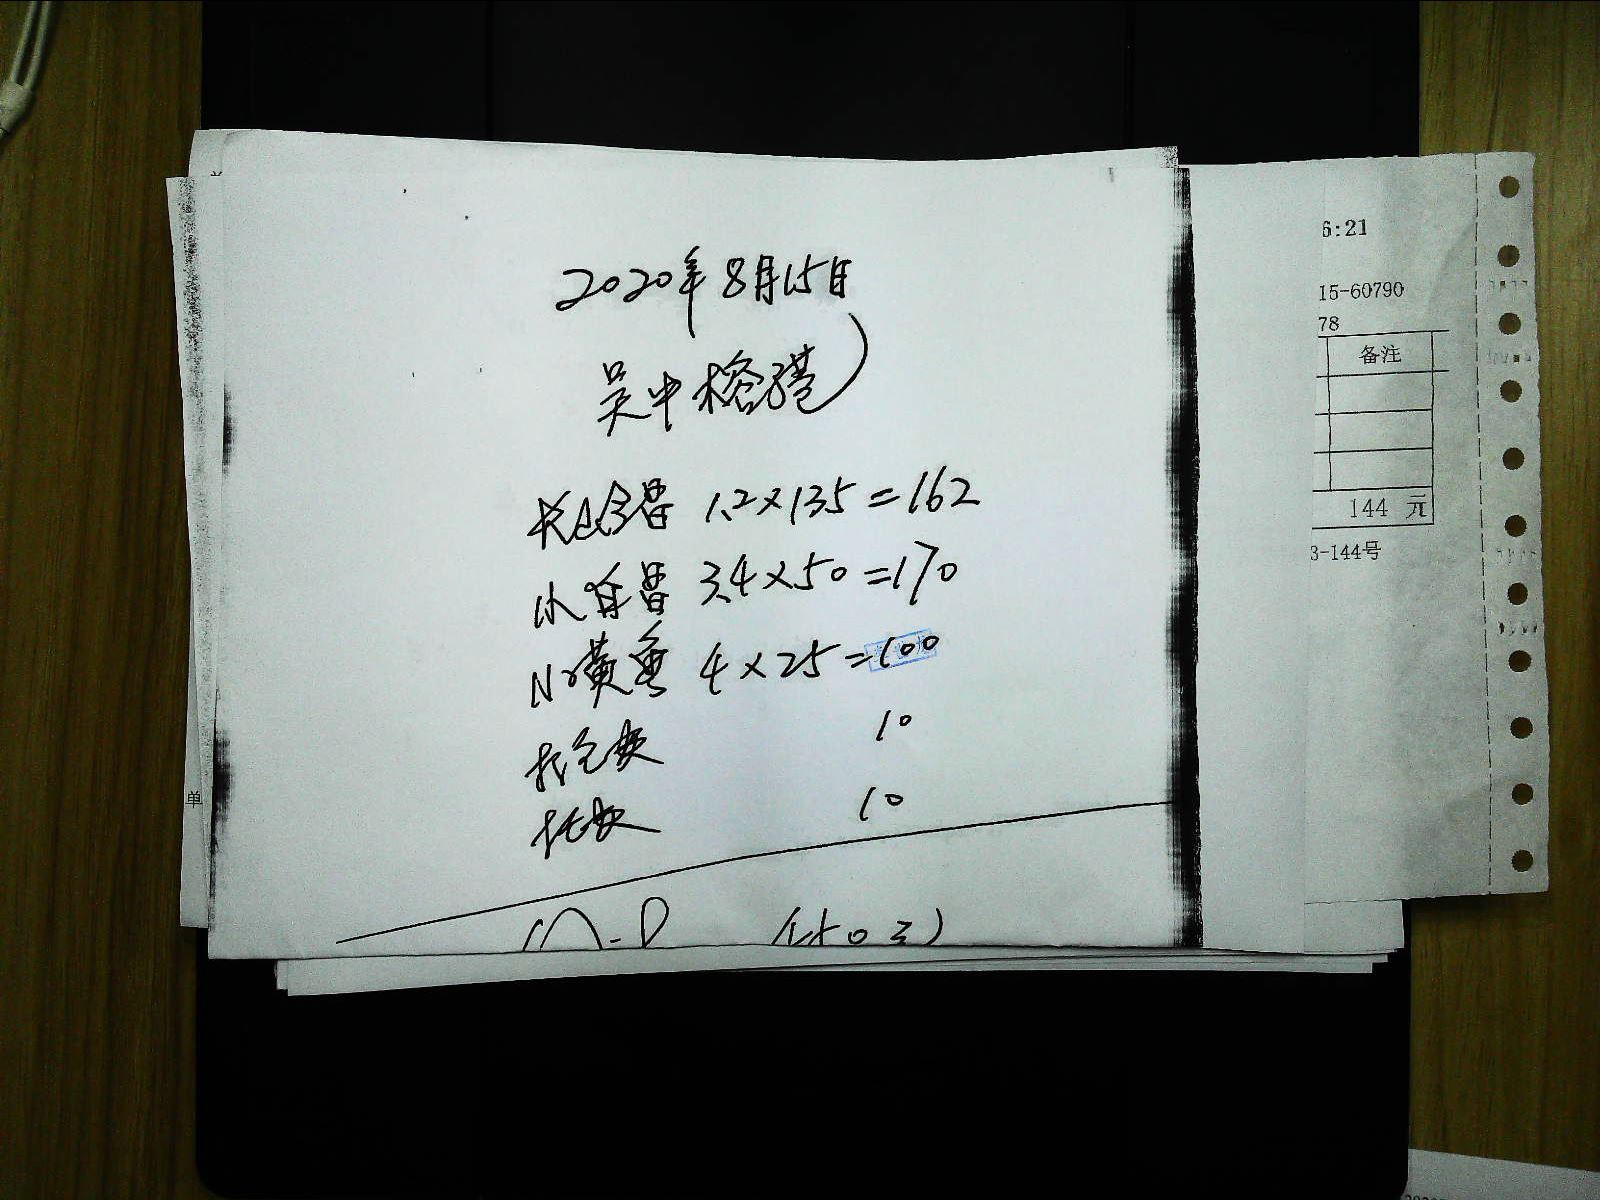 2020年8月15日
吴中榕港
1.2×135=162
3.4×50=170
小黄鱼 4×25=100
打包费 10
托费 10
6:21
15-60790
78
备注
144 元
3-144号
单